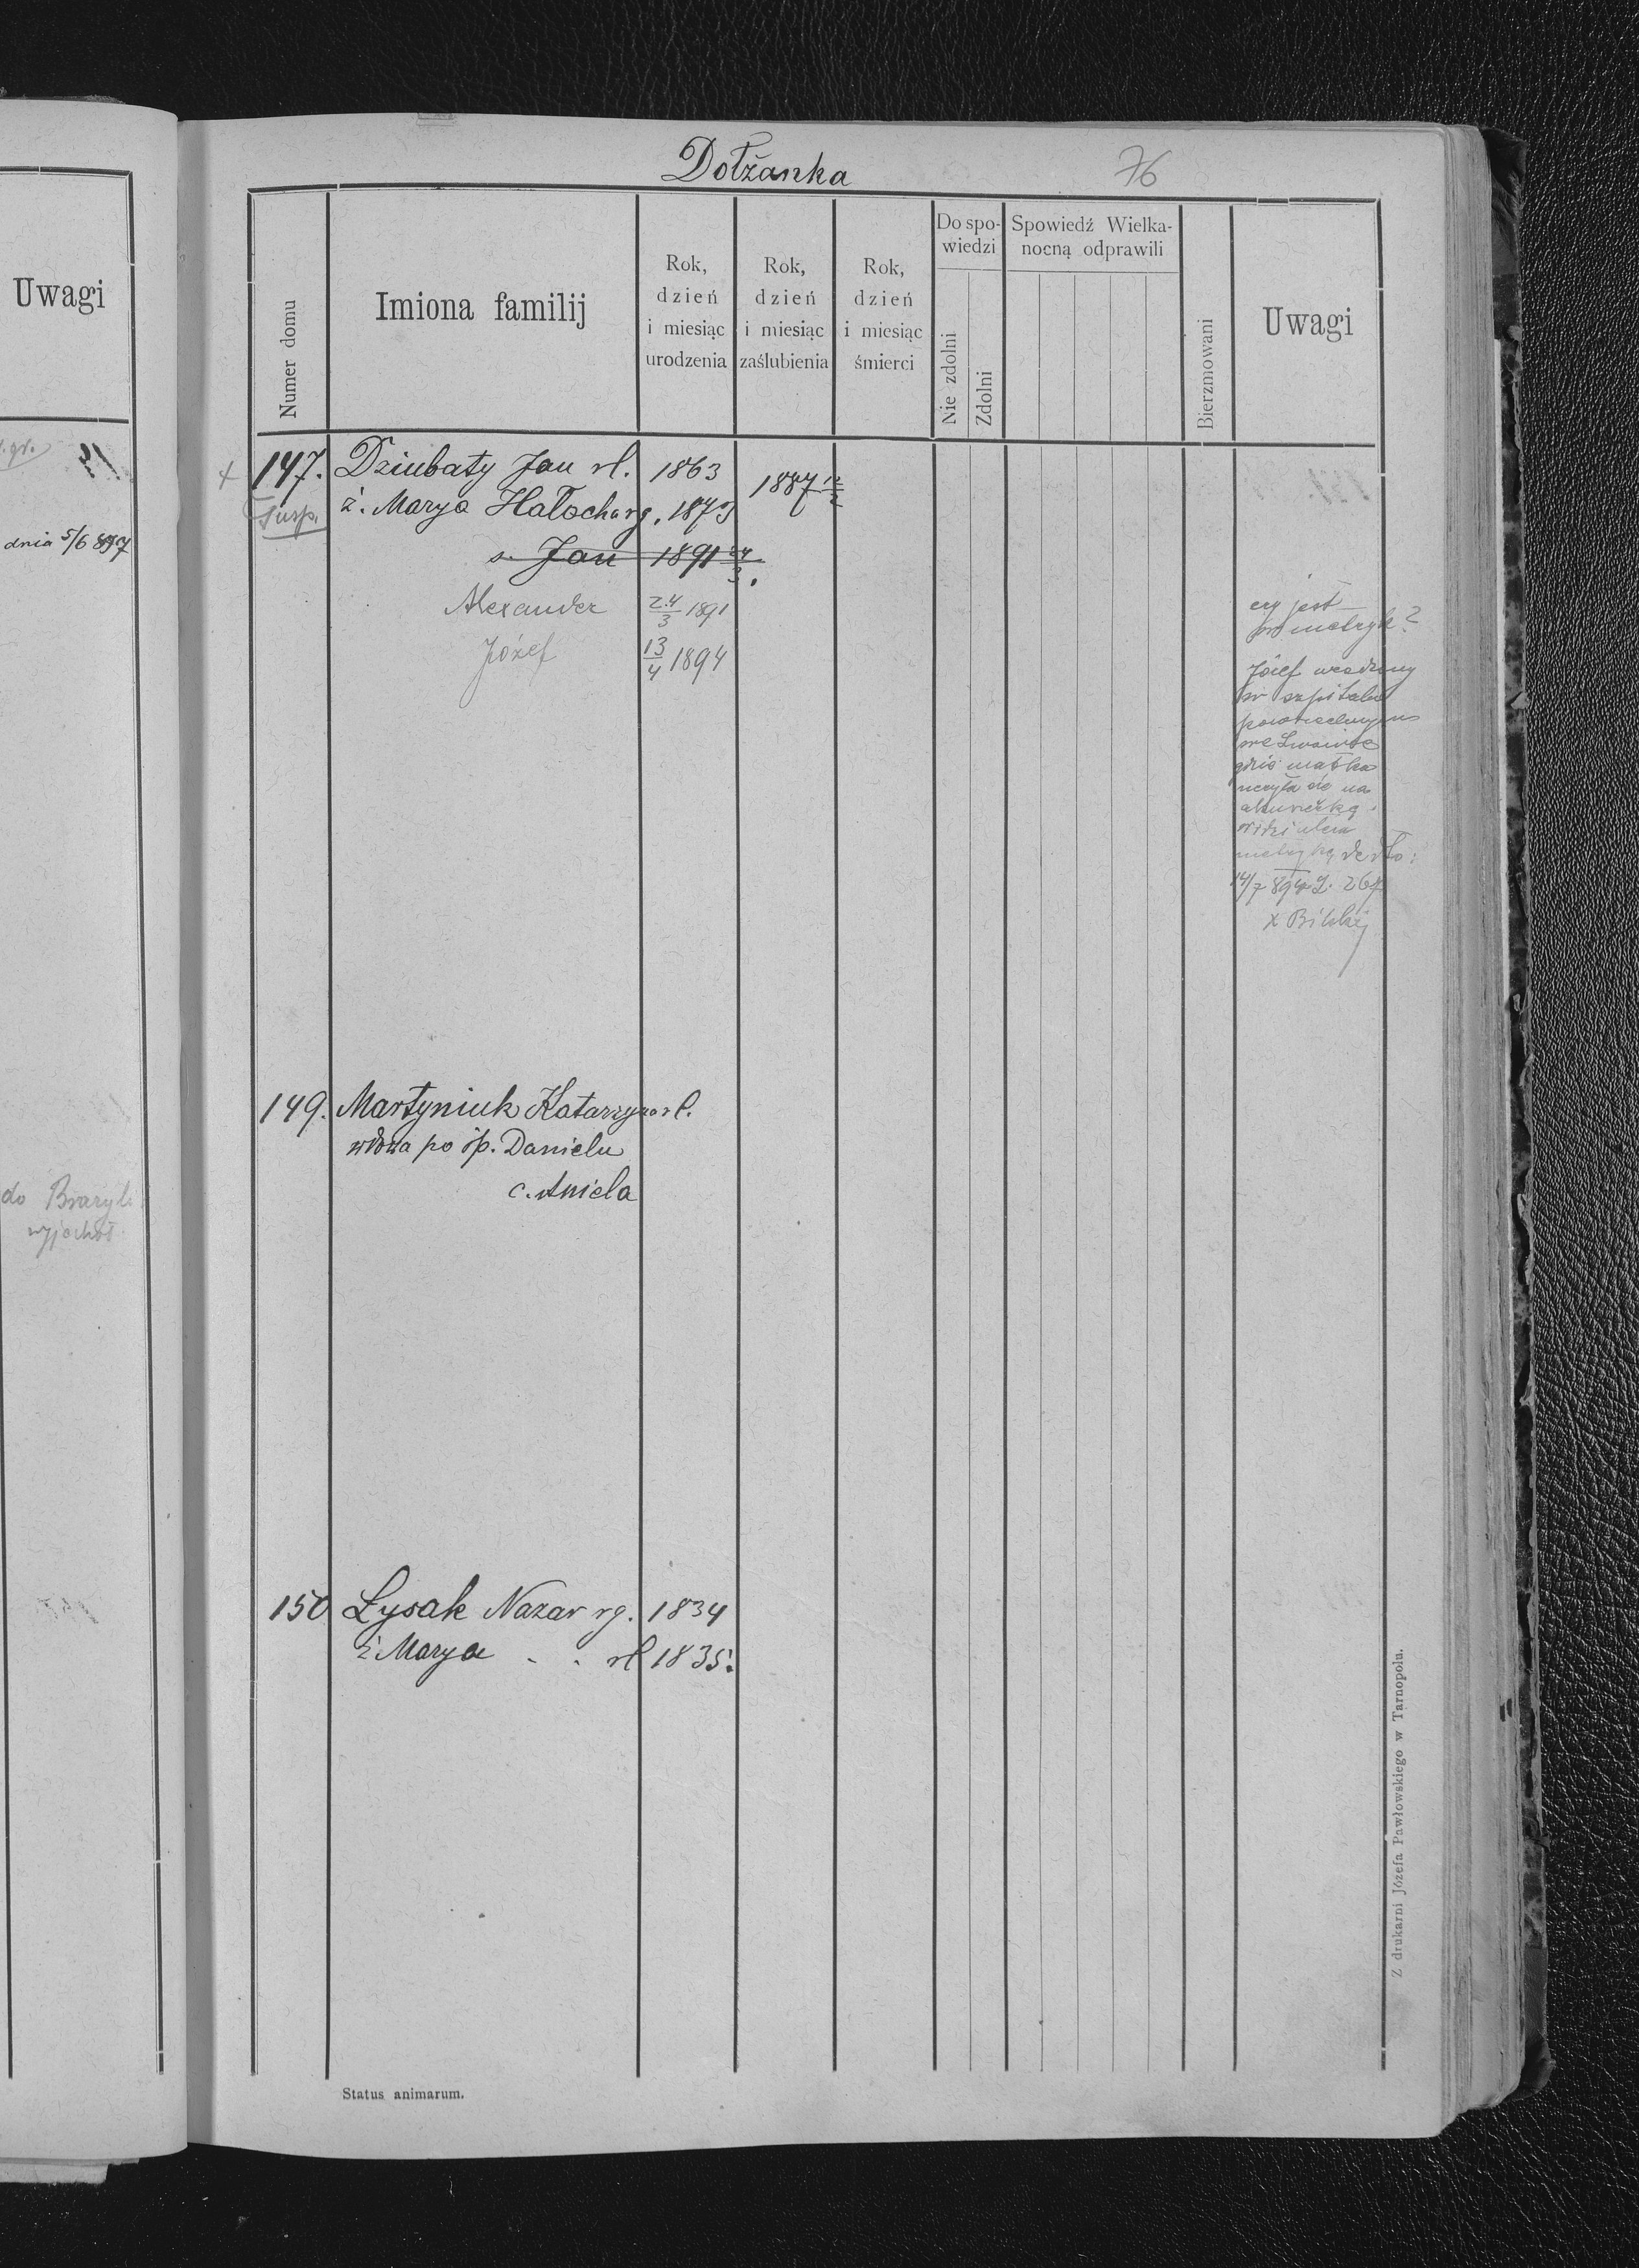 Uwagi
dnia 5/6 897
do Brazyl
wyjechał
Dołżanka
76
Numer domu
Imiona familij
Rok,
dzień
i miesiąc
urodzenia
Rok,
dzień
i miesiąc
zaślubienia
Rok,
dzień
i miesiąc
śmierci
Do spo-
wiedzi
Nie zdolni
Zdolni
Spowiedź Wielka-
nocną odprawili
Bierzmowani
Uwagi
147. Dziubaty Jan rl. 1863 1887 12/2
Susp. ż. Marya Hałocha rg. 1873
s. Jan 1891 24/3.
Alexander 24/3 1891
Józef 13/4 1894
czy jest
w metryk?
Józef urodzony
w szpitalu
powszechnym
we Lwowie
gdzie matka
uczyła się na
akuszerkę.
metrykę de dto:
14/7 894 L. 267
X Bilski
149. Martyniuk Katarzyna rl.
wdowa po śp. Danielu
c. Aniela
150 Łysak Nazar rg. 1834
ż Marya - . rl 1835.
Status animarum.
Z drukarni Józefa Pawłowskiego w Tarnopolu.